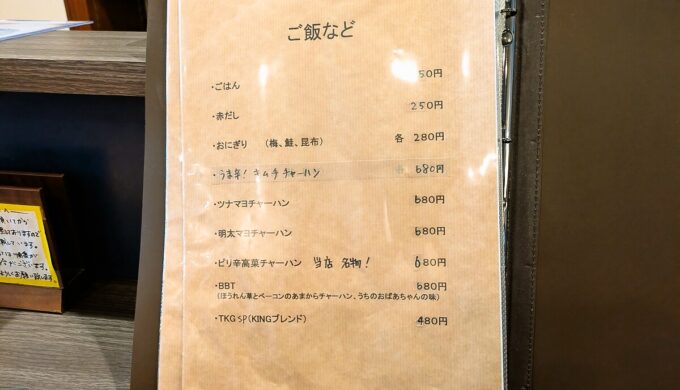 ご飯など
・ごはん 50円
・赤だし 250円
・おにぎり （梅、鮭、昆布） 各 280円
・うま辛！ キムチ チャーハン 680円
・ツナマヨチャーハン 680円
・明太マヨチャーハン 680円
・ピリ辛高菜チャーハン 当店 名物！ 680円
・BBT 680円
（ほうれん草とベーコンのあまからチャーハン、うちのおばあちゃんの味）
・TKG SP（KINGブレンド） 480円